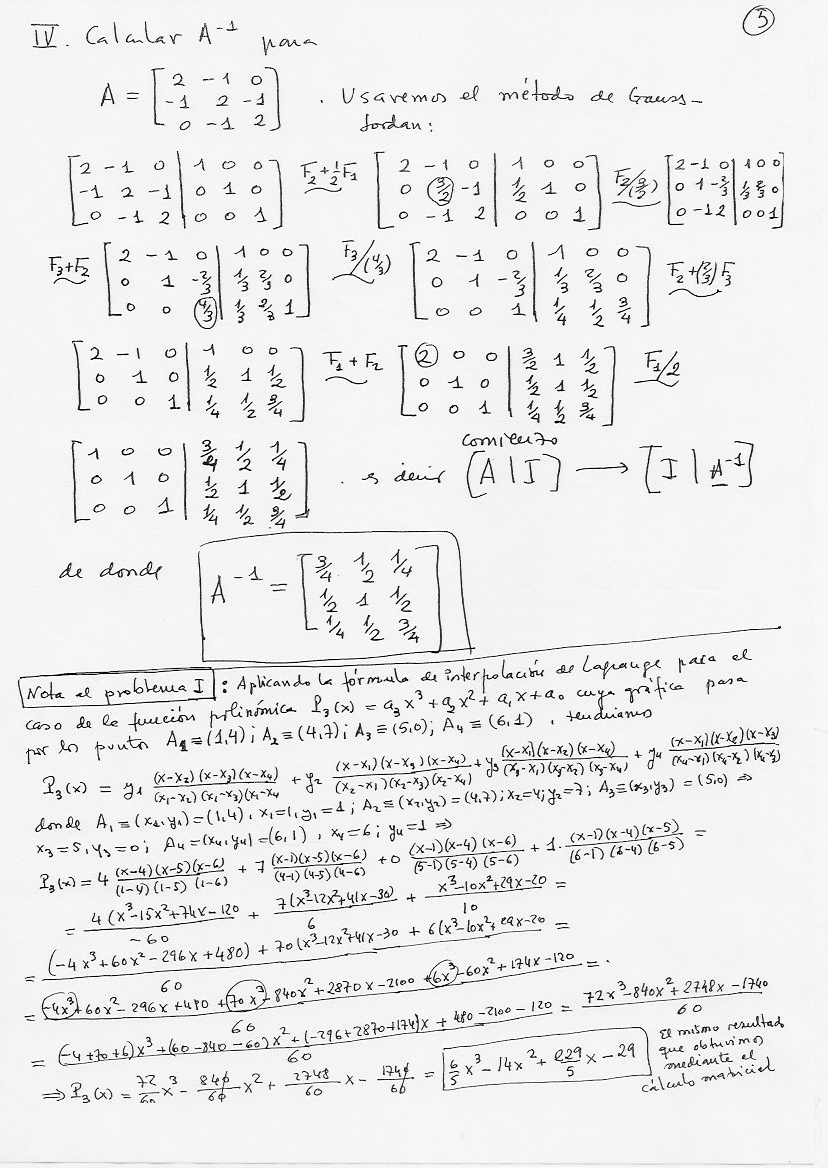 5
IV. Calcular A⁻¹ para
A = [2 -1 0; -1 2 -1; 0 -1 2] . Usaremos el método de Gauss-
Jordan:
[2 -1 0 | 1 0 0; -1 2 -1 | 0 1 0; 0 -1 2 | 0 0 1] F₂+½F₁ [2 -1 0 | 1 0 0; 0 3/2 -1 | 1/2 1 0; 0 -1 2 | 0 0 1] F₂/(3/2) [2 -1 0 | 1 0 0; 0 1 -2/3 | 1/3 2/3 0; 0 -1 2 | 0 0 1]
F₃+F₂ [2 -1 0 | 1 0 0; 0 1 -2/3 | 1/3 2/3 0; 0 0 4/3 | 1/3 2/3 1] F₃/(4/3) [2 -1 0 | 1 0 0; 0 1 -2/3 | 1/3 2/3 0; 0 0 1 | 1/4 1/2 3/4] F₂+(2/3)F₃
[2 -1 0 | 1 0 0; 0 1 0 | 1/2 1 1/2; 0 0 1 | 1/4 1/2 3/4] F₁+F₂ [2 0 0 | 3/2 1 1/2; 0 1 0 | 1/2 1 1/2; 0 0 1 | 1/4 1/2 3/4] F₁/2
[1 0 0 | 3/4 1/2 1/4; 0 1 0 | 1/2 1 1/2; 0 0 1 | 1/4 1/2 3/4] . es decir [A | I] → [I | A⁻¹]
comienzo
de donde A⁻¹ = [3/4 1/2 1/4; 1/2 1 1/2; 1/4 1/2 3/4]
Nota al problema I : Aplicando la fórmula de interpolación de Lagrange para el
caso de la función polinómica P₃(x) = a₃x³ + a₂x² + a₁x + a₀ cuya gráfica pasa
por los puntos A₁ ≡ (1,4) ; A₂ ≡ (4,7) ; A₃ ≡ (5,0) ; A₄ ≡ (6,1) , tendríamos
P₃(x) = y₁ (x-x₂)(x-x₃)(x-x₄)/(x₁-x₂)(x₁-x₃)(x₁-x₄ + y₂ (x-x₁)(x-x₃)(x-x₄)/(x₂-x₁)(x₂-x₃)(x₂-x₄) + y₃ (x-x₁)(x-x₂)(x-x₄)/(x₃-x₁)(x₃-x₂)(x₃-x₄) + y₄ (x-x₁)(x-x₂)(x-x₃)/(x₄-x₁)(x₄-x₂)(x₄-x₃)
donde A₁ ≡ (x₁,y₁) = (1,4) , x₁=1, y₁=1 ; A₂ ≡ (x₂,y₂) = (4,7) ; x₂=4; y₂=7 ; A₃ ≡ (x₃,y₃) = (5,0) ⇒
x₃=5, y₃=0 ; A₄ = (x₄,y₄) = (6,1) , x₄=6 ; y₄=1 ⇒
P₃(x) = 4 (x-4)(x-5)(x-6)/(1-4)(1-5)(1-6) + 7 (x-1)(x-5)(x-6)/(4-1)(4-5)(4-6) + 0 (x-1)(x-4)(x-6)/(5-1)(5-4)(5-6) + 1· (x-1)(x-4)(x-5)/(6-1)(6-4)(6-5) =
= 4(x³-15x²+74x-120/-60 + 7(x³-12x²+41x-30)/6 + x³-10x²+29x-20/10 =
= (-4x³+60x²-296x+480) + 70(x³-12x²+41x-30 + 6(x³-10x²+29x-20/60 =
= -4x³+60x²-296x+480+70x³-840x²+2870x-2100+6x³-60x²+174x-120/60 = .
= (-4+70+6)x³+(60-840-60)x²+(-296+2870+174)x+480-2100-120/60 = 72x³-840x²+2748x-1740/60
⇒ P₃(x) = 72/60 x³ - 840/60 x² + 2748/60 x - 1740/60 = 6/5 x³ - 14x² + 229/5 x - 29
El mismo resultado
que obtuvimos
mediante el
cálculo matricial